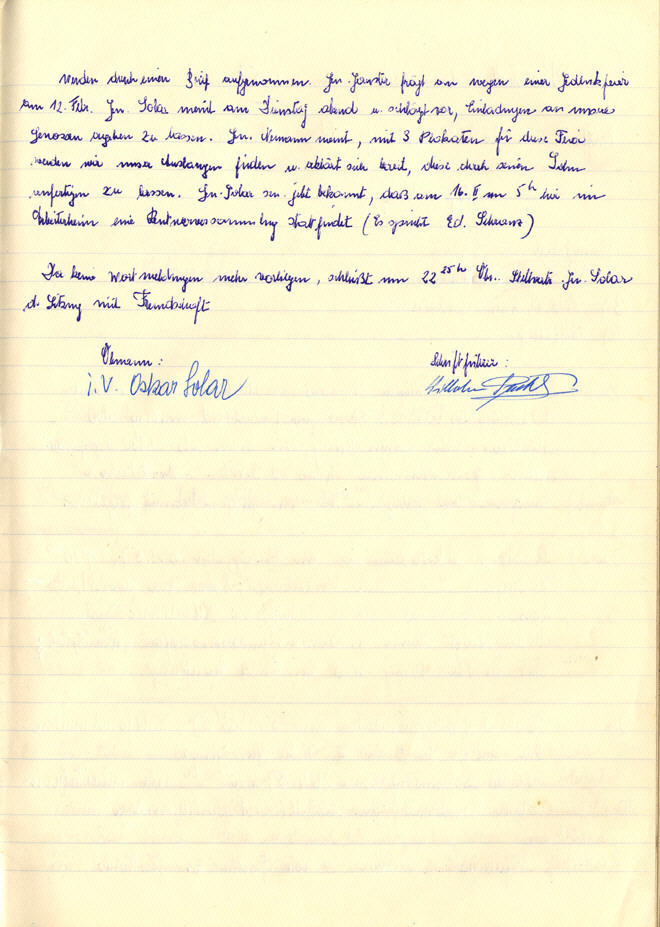 werden durch einen Brief aufgenommen. Gen. frägt an wegen einer Gedenkfeier
am 12. Feber. Gen. Solar meint am Dienstag abend u. schlägt vor, Einladungen an unsere
Genossen ergehen zu lassen. Gen. Nemann meint, mit 3 Plakaten für diese Feier
werden wir unser Auslangen finden u. erklärt sich bereit, diese durch seinen Sohn
anfertigen zu lassen. Gen. Solar sen. gibt bekannt, daß am 16. II um 5 h hier im
Arbeiterheim eine Rentnerversammlung stattfindet (Es spricht Ed. Schwarz)
Da keine Wortmeldungen mehr vorliegen, schließt um 22 25 h Obm. Stellvertr. Gen. Solar
d. Sitzung mit Freundschaft
Obmann: Schriftführer:
i.V. Oskar Solar Wilhelm